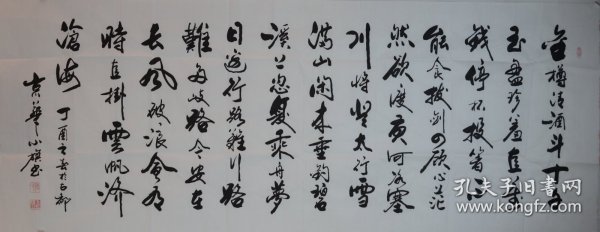 金樽清酒斗十千
玉盘珍羞直萬
钱停杯投箸不
能食拔劍四顾心茫
然欲渡黄河冰塞
川将登太行雪
满山闲来垂钓碧
溪上忽复乘舟梦
日边行路难行路
難多歧路今安在
长风破浪會有
時直掛雲帆济
滄海 丁酉之
京華小旗書
孔夫子旧书网
www.kongfz.com